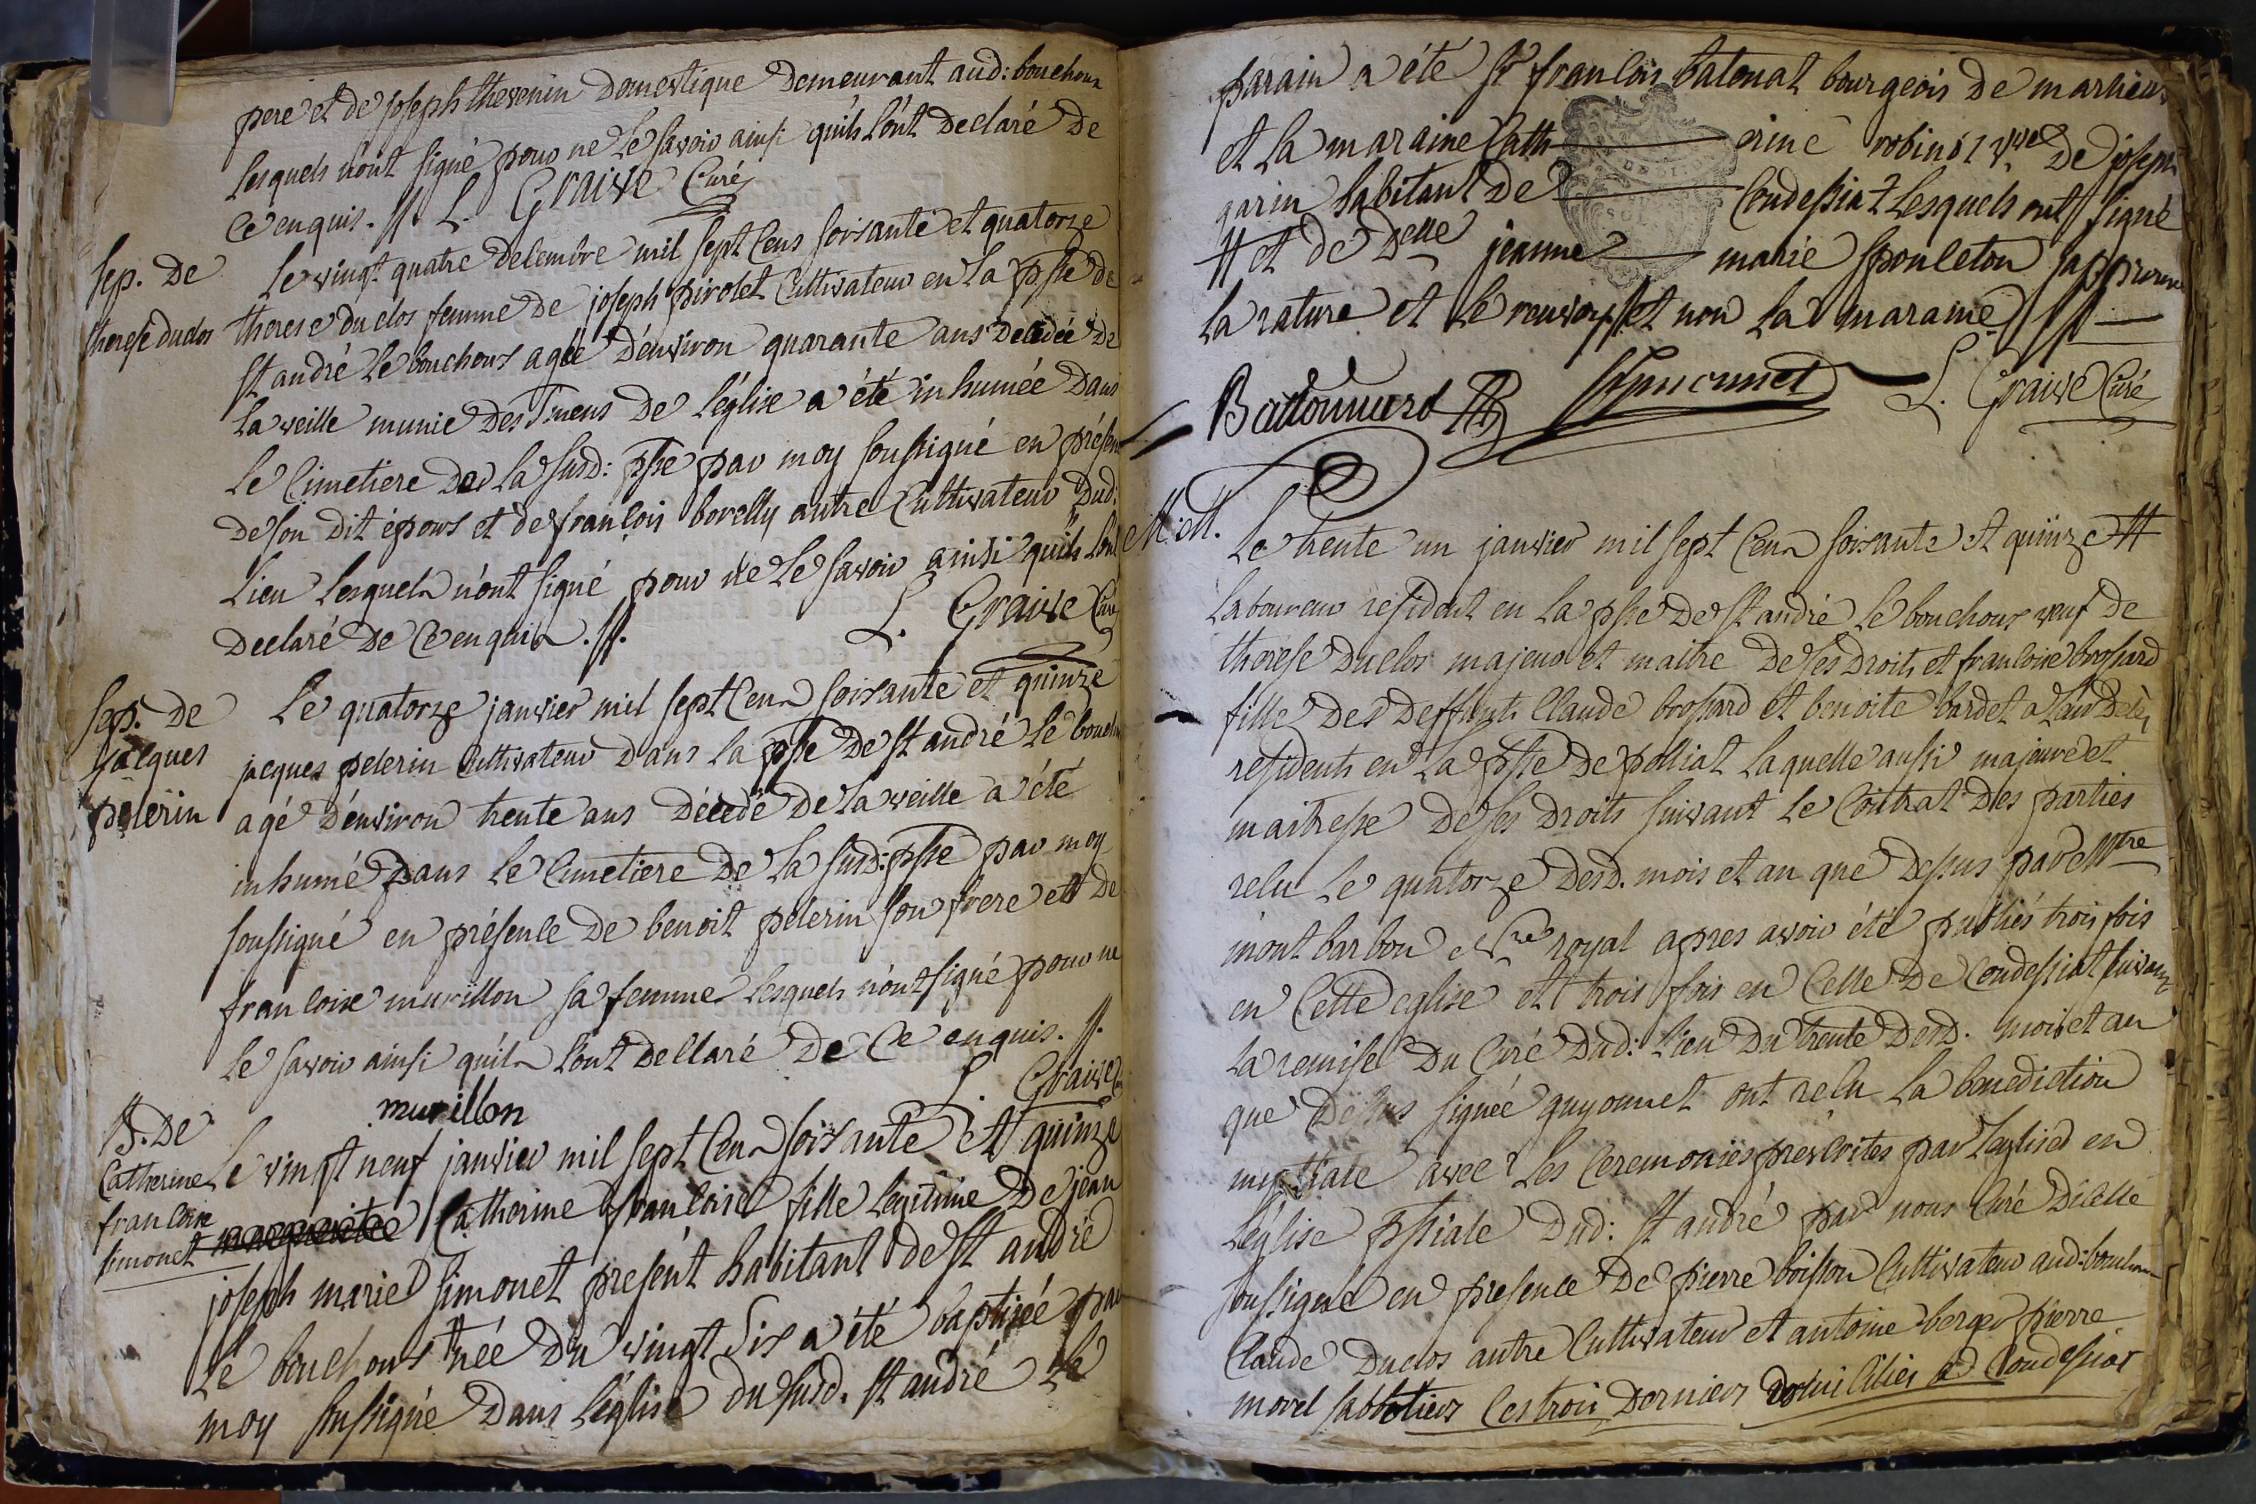 pere et de joseph thevenin Domestique Demeurant aud: bouchoux
lesquels n'ont signé pour ne le savoir ainsi qu'ils l'ont Declaré De
Ce enquis. //. L. Graive Curé
Sep. De
therese duclos
Le vingt quatre decembre mil sept Cens soixante et quatorze
therese duclos femme de joseph pirolet Cultivateur en la psse de
St andré le bouchoux agée d'environ quarante ans Decedée de
la veille munie des Smens de l'église a été inhumée Dans
le Cimetiere de la susd: psse par moy soussigné en présence
de son dit époux et de françois borelly autre Cultivateur Dud:
lieu lesquels n'ont signé pour ne le savoir ainsi qu'ils l'ont
Declaré De Ce enquis. //. L. Graive Curé
Sep. De
jacques
pelerin
Le quatorze janvier mil sept Cens soixante et quinze
jacques pelerin Cultivateur Dans la psse De St andré le bouchoux
agé d'environ trente ans Décedé De la veille a été
inhumé Dans le Cimetiere De la susd: psse par moy
soussigné en présence De benoit pelerin son frere et De
francoise murillon sa femme lesquels n'ont signé pour ne
le savoir ainsi qu'ils l'ont Declaré De Ce enquis. //.
murillon L. Graive
B. De
Catherine
francoise
simonet
Le vingt neuf janvier mil sept Cens soixante et quinze
marguerite Catherine francoise fille legitime De jean
joseph marie simonet présent habitant de St andré
le bouchoux née Du vingt six a été baptisée par
moy soussigné Dans l'église du susd. St andré le
parain a été Sr francois batonat bourgeois De marlieux
et la maraine Cath erine robin vve De joseph
garin habitant De Condessiat lesquels ont signé
# et de Delle jeanne marie
la rature et le renvoy et non la maraine //
L. Graive Curé
M. M.
Le trente un janvier mil sept Cens soixante et quinze #
laboureur resident en la psse De St andré le bouchoux veuf de
therese Duclos majeur et maitre De ses Droits et francoise brossard
fille Des Deffunts Claude brossard et benoite bardet
residents en la psse De polliat laquelle aussi majeure et
maitresse De ses Droits suivant le Contrat Des parties
relu le quatorze Desd. mois et an que Dessus par Mtre
mont barbon Nre royal apres avoir été publiés trois fois
en Cette eglise et trois fois en Celle De Condessiat suivant
la remise Du Curé Dud: lieu Du trente Desd. mois et an
que Dessus signée guyonnet ont relu la benediction
nuptiale avec les Ceremonies prescrites par l'eglise en
l'église pssiale Dud: St andré par nous Curé D'icelle
soussigné en presence De pierre boisson Cultivateur aud: bouchoux
Claude Duclos autre Cultivateur et antoine berger pierre
morel sabbotiers Ces trois Derniers Domiciliés a Condessiat